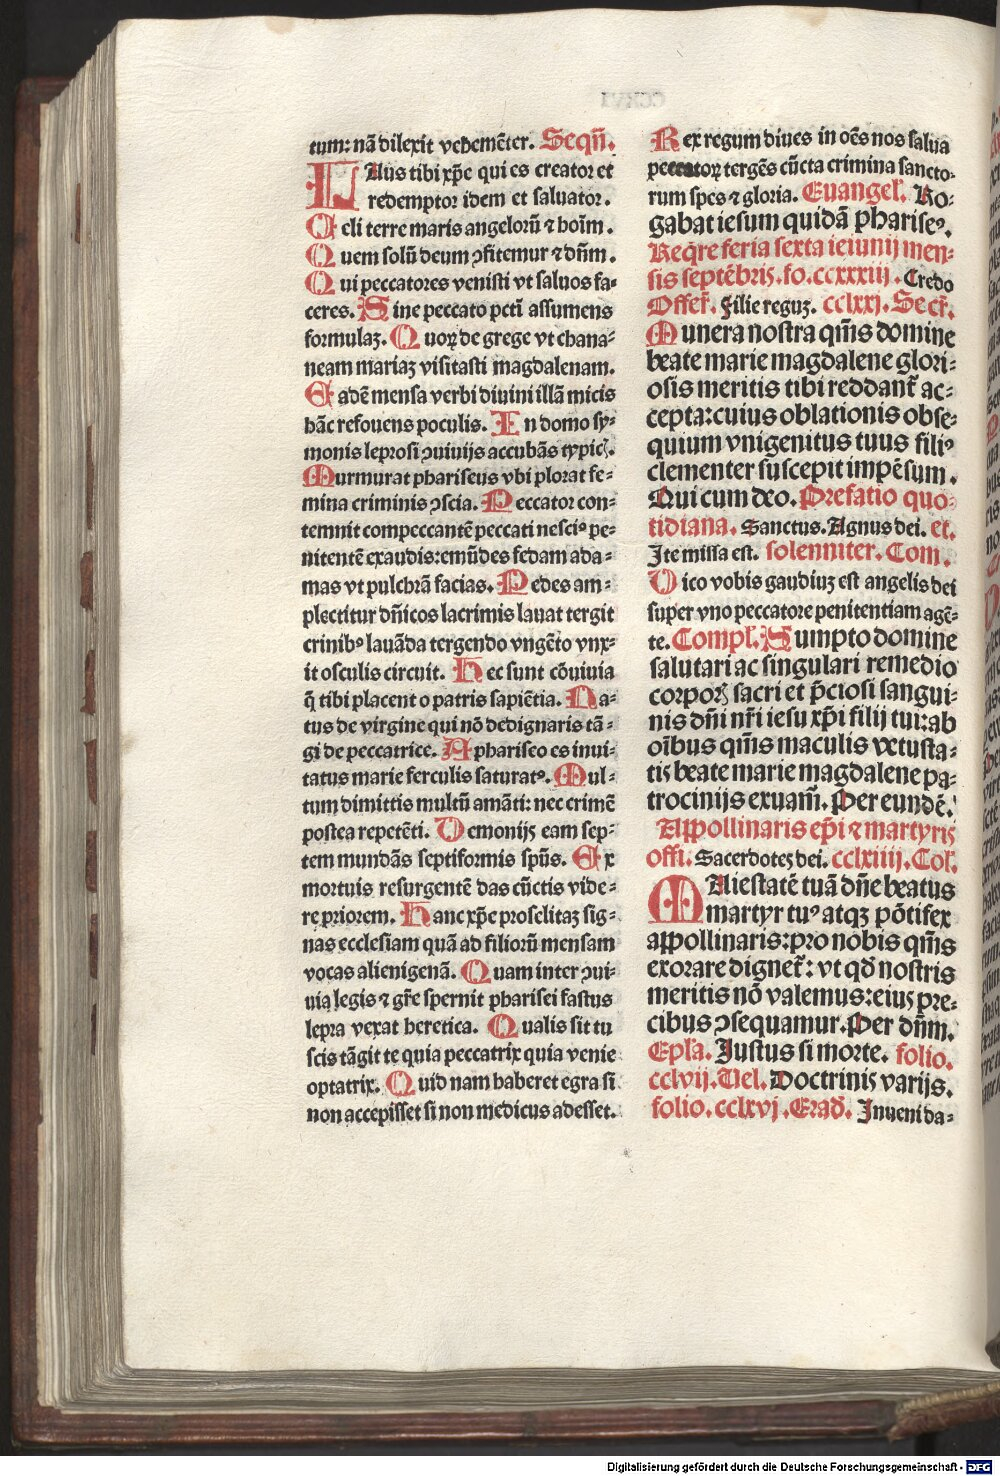 tum: nā dilexit vehemēter. Seqn̄.
LAus tibi xp̄e qui es creator et
redemptor idem et saluator.
Celi terre maris angelorū ⁊ hoīm.
Quem solū deum ꝯfitemur ⁊ dn̄m.
Qui peccatores venisti vt saluos fa⸗
ceres. Sine peccato pctī assumens
formulaꝫ. Quoꝝ de grege vt chana⸗
neam mariaꝫ visitasti magdalenam.
Eadē mensa verbi diuini illā micis
hāc refouens poculis. In domo sy⸗
monis leprosi ꝯuiuijs accubās typicꝭ.
Murmurat phariseus vbi plorat fe⸗
mina criminis ꝯscia. Peccator con⸗
temnit compeccantē peccati nesciꝰ pe⸗
nitentē exaudis: emūdes fedam ada⸗
mas vt pulchrā facias. Pedes am⸗
plectitur dn̄icos lacrimis lauat tergit
crinibꝰ lauāda tergendo vngēto vnx⸗
it osculis circuit. Hec sunt cōuiuia
q̄ tibi placent o patris sapiētia. Na⸗
tus de virgine qui nō dedignaris tā⸗
gi de peccatrice. A phariseo es inui⸗
tatus marie ferculis saturatꝰ. Mul⸗
tum dimittis multū amāti: nec crimē
postea repetēti. Demonijs eam sep⸗
tem mundās septiformis spūs. Ex
mortuis resurgentē das cūctis vide⸗
re priorem. Hanc xp̄e proselitaꝫ sig⸗
nas ecclesiam quā ad filiorū mensam
vocas alienigenā. Quam inter ꝯui⸗
uia legis ⁊ gr̄e spernit pharisei fastus
lepra vexat heretica. Qualis sit tu
scis tāgit te quia peccatrix quia venie
optatrix. Quid nam haberet egra si
non accepisset si non medicus adesset.
Rex regum diues in oēs nos salua
peccatoꝝ tergēs cūcta crimina sancto⸗
rum spes ⁊ gloria. Euangel̄. Ro⸗
gabat iesum quidā phariseꝰ.
Req̄re feria sexta ieiunij men⸗
sis septēbris. fo. ccxxxiij. Credo
Offer̄. Filie reguꝫ. cclxxj. Secr̄.
Munera nostra qm̄s domine
beate marie magdalene glori⸗
osis meritis tibi reddant̄ ac⸗
cepta: cuius oblationis obse⸗
quium vnigenitus tuus filiꝰ
clementer suscepit impēsum.
Qui cum deo. Prefatio quo⸗
tidiana. Sanctus. Agnus dei. et.
Ite missa est. solenniter. Com.
Dico vobis gaudiuꝫ est angelis dei
super vno peccatore penitentiam agē⸗
te. Compl̄. Sumpto domine
salutari ac singulari remedio
corporꝭ sacri et p̄ciosi sangui⸗
nis dn̄i nr̄i iesu xp̄i filij tui: ab
oībus qm̄s maculis vetusta⸗
tis beate marie magdalene pa⸗
trocinijs exuam̄. Per eundē.
Appollinaris ep̄i ⁊ martyris
offi. Sacerdotes dei. cclxiiij. Col̄.
MAiestatē tuā dn̄e beatus
martyr tuꝰ atqꝫ pōtifex
appollinaris: pro nobis qm̄s
exorare dignet̄: vt qd̄ nostris
meritis nō valemus: eius pre⸗
cibus ꝯsequamur. Per dn̄m.
Epl̄a. Justus si morte. folio.
cclvij. Uel. Doctrinis varijs.
folio. cclxvj. Grad̄. Inueni da⸗
Digitalisierung gefördert durch die Deutsche Forschungsgemeinschaft - DFG